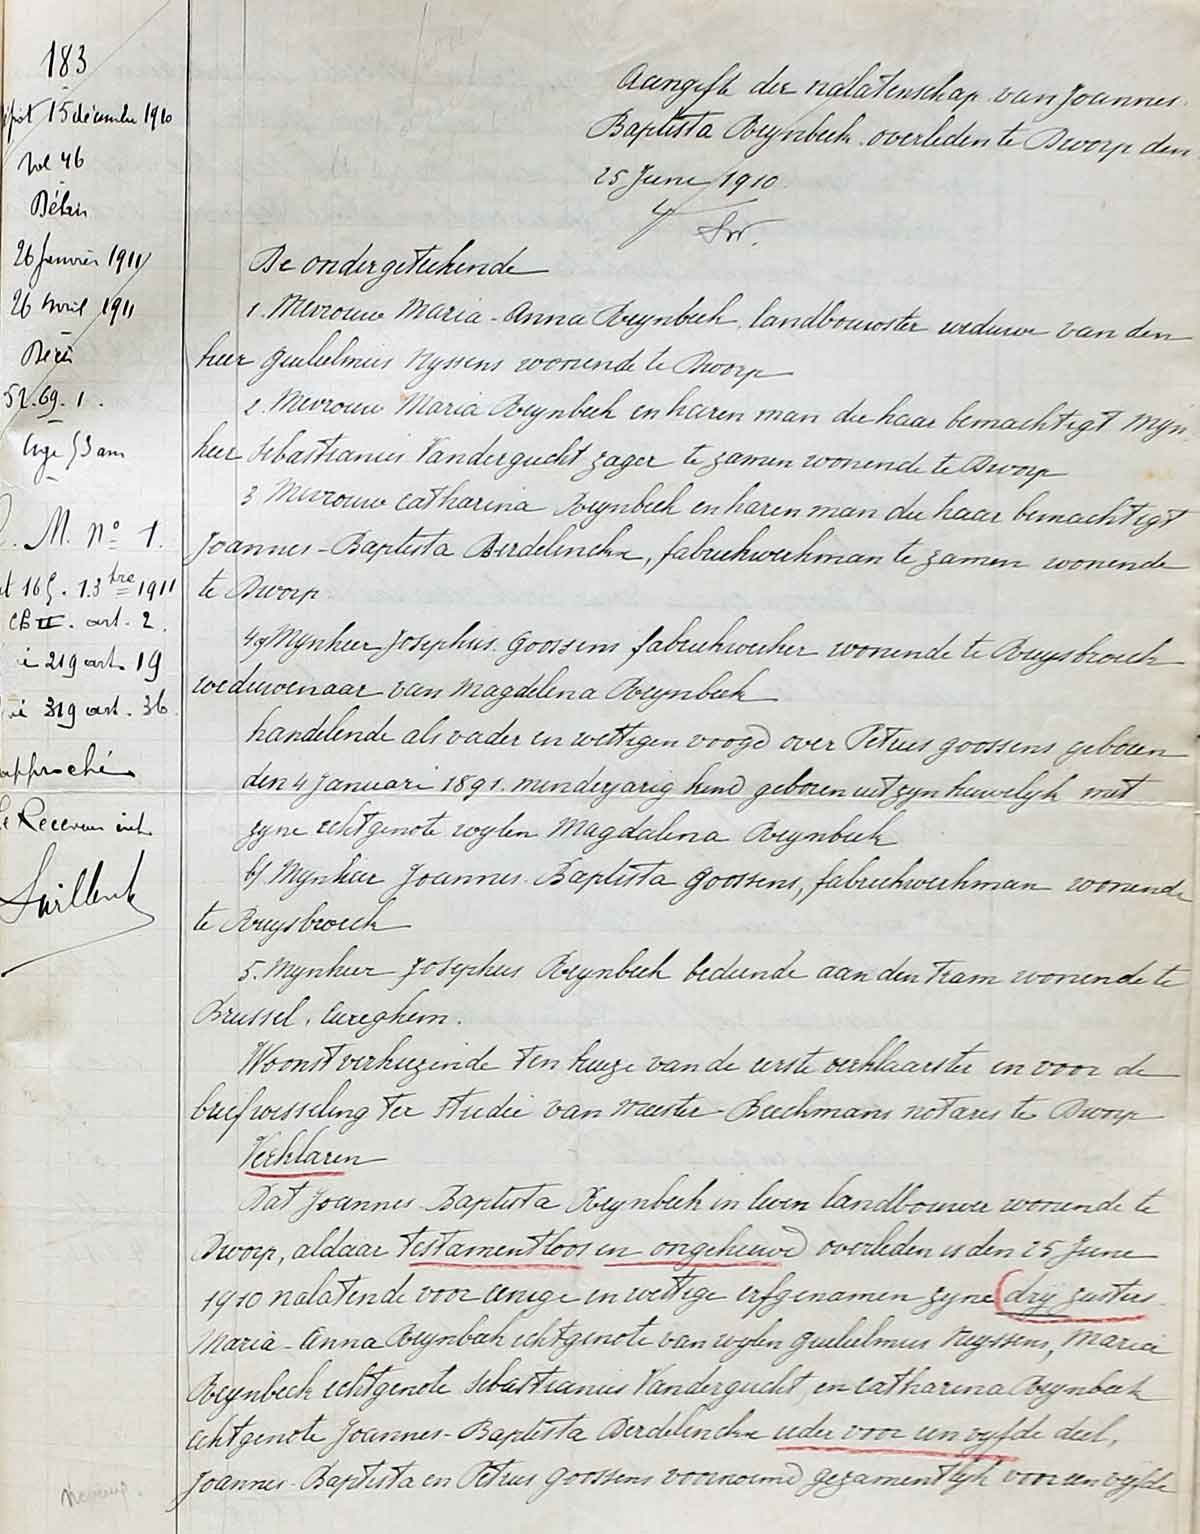 183
15 décembre 1910
vol 46
Délai
26 Janvier 1911
26 Avril 1911
52.69.1.
Age 53 ans
M. No 1.
165. 1911
CB II. art. 2.
219 art. 19
319 art. 36
approché
Le Receveur
Aangifte der nalatenschap van Joannes
Baptista Reynbeek overleden te Dworp den
25 Juni 1910
De ondergeteekende
1. Mevrouw Maria-Anna Reynbeek, landbouwster weduwe van den
heer Guilielmus Nyssens wonende te Dworp
2. Mevrouw Maria Reynbeek en haren man die haar bemachtigt Mijn
heer Sebastianus Vandergucht zager te zamen wonende te Dworp
3 Mevrouw Catharina Reynbeek en haren man die haar bemachtigt
Joannes-Baptista Derdelinckx, fabriekwerkman te zamen wonende
te Dworp
4 a/ Mynheer Josephus Goossens fabriekwerker wonende te Ruysbroeck
weduwenaar van Magdelena Reynbeek
handelende als vader en wettigen voogd over Petrus Goossens geboren
den 4 Januari 1891. minderjarig kind geboren uit zyn huwelyk met
zyne echtgenote wylen Magdalena Reynbeek
b/ Mynheer Joannes-Baptista Goossens, fabriekwerkman wonende
te Ruysbroeck
5. Mynheer Josephus Reynbeek bediende aan den Tram wonende te
Brussel, Cureghem.
Woonst verkiezende ten huize van de eerste verklaarster en voor de
briefwisseling ter studie van Meester Beeckmans notaris te Dworp
Verklaren
Dat Joannes Baptista Reynbeek in leven landbouwer wonende te
Dworp, aldaar testamentloos en ongehuwd overleden is den 25 June
1910 nalatende voor eenige en wettige erfgenamen zyne drij zusters
Maria-Anna Reynbeek echtgenote van wylen Guilielmus Nyssens, Maria
Reynbeek echtgenote Sebastianus Vandergucht, en Catharina Reynbeek
echtgenote Joannes-Baptista Derdelinckx ieder voor een vyfde deel,
Joannes-Baptista en Petrus Goossens voornoemd gezamentlyk voor een vyfde